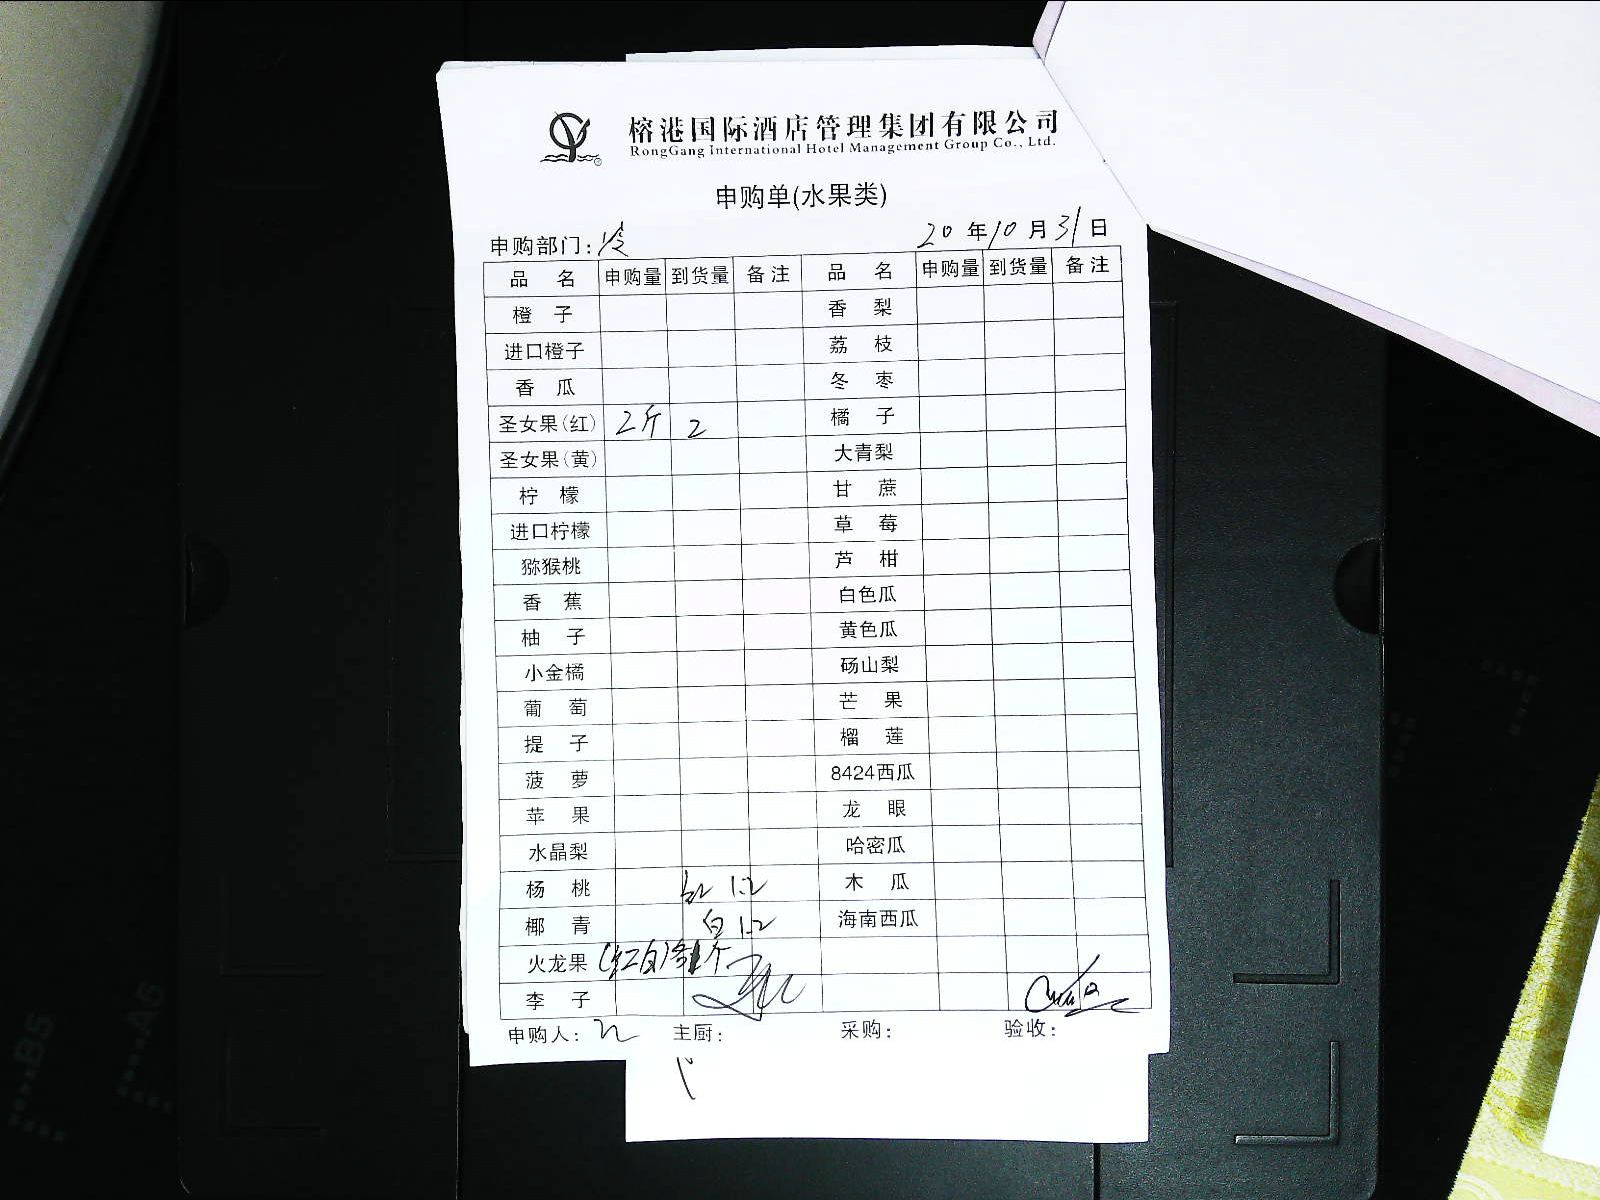 榕港国际酒店管理集团有限公司
RongGang International Hotel Management Group Co., Ltd.
申购单(水果类)
申购部门: 冷 20 年 10 月 31 日
品 名 申购量 到货量 备注 品 名 申购量 到货量 备注
橙 子 香 梨
进口橙子 荔 枝
香 瓜 冬 枣
圣女果(红) 2斤 2 橘 子
圣女果(黄) 大青梨
柠 檬 甘 蔗
进口柠檬 草 莓
猕猴桃 芦 柑
香 蕉 白色瓜
柚 子 黄色瓜
小金橘 砀山梨
葡 萄 芒 果
提 子 榴 莲
菠 萝 8424西瓜
苹 果 龙 眼
水晶梨 哈密瓜
杨 桃 红 1.2 木 瓜
椰 青 白 1.2 海南西瓜
火龙果 (红白)各1斤
李 子
申购人: 主厨: 采购: 验收: